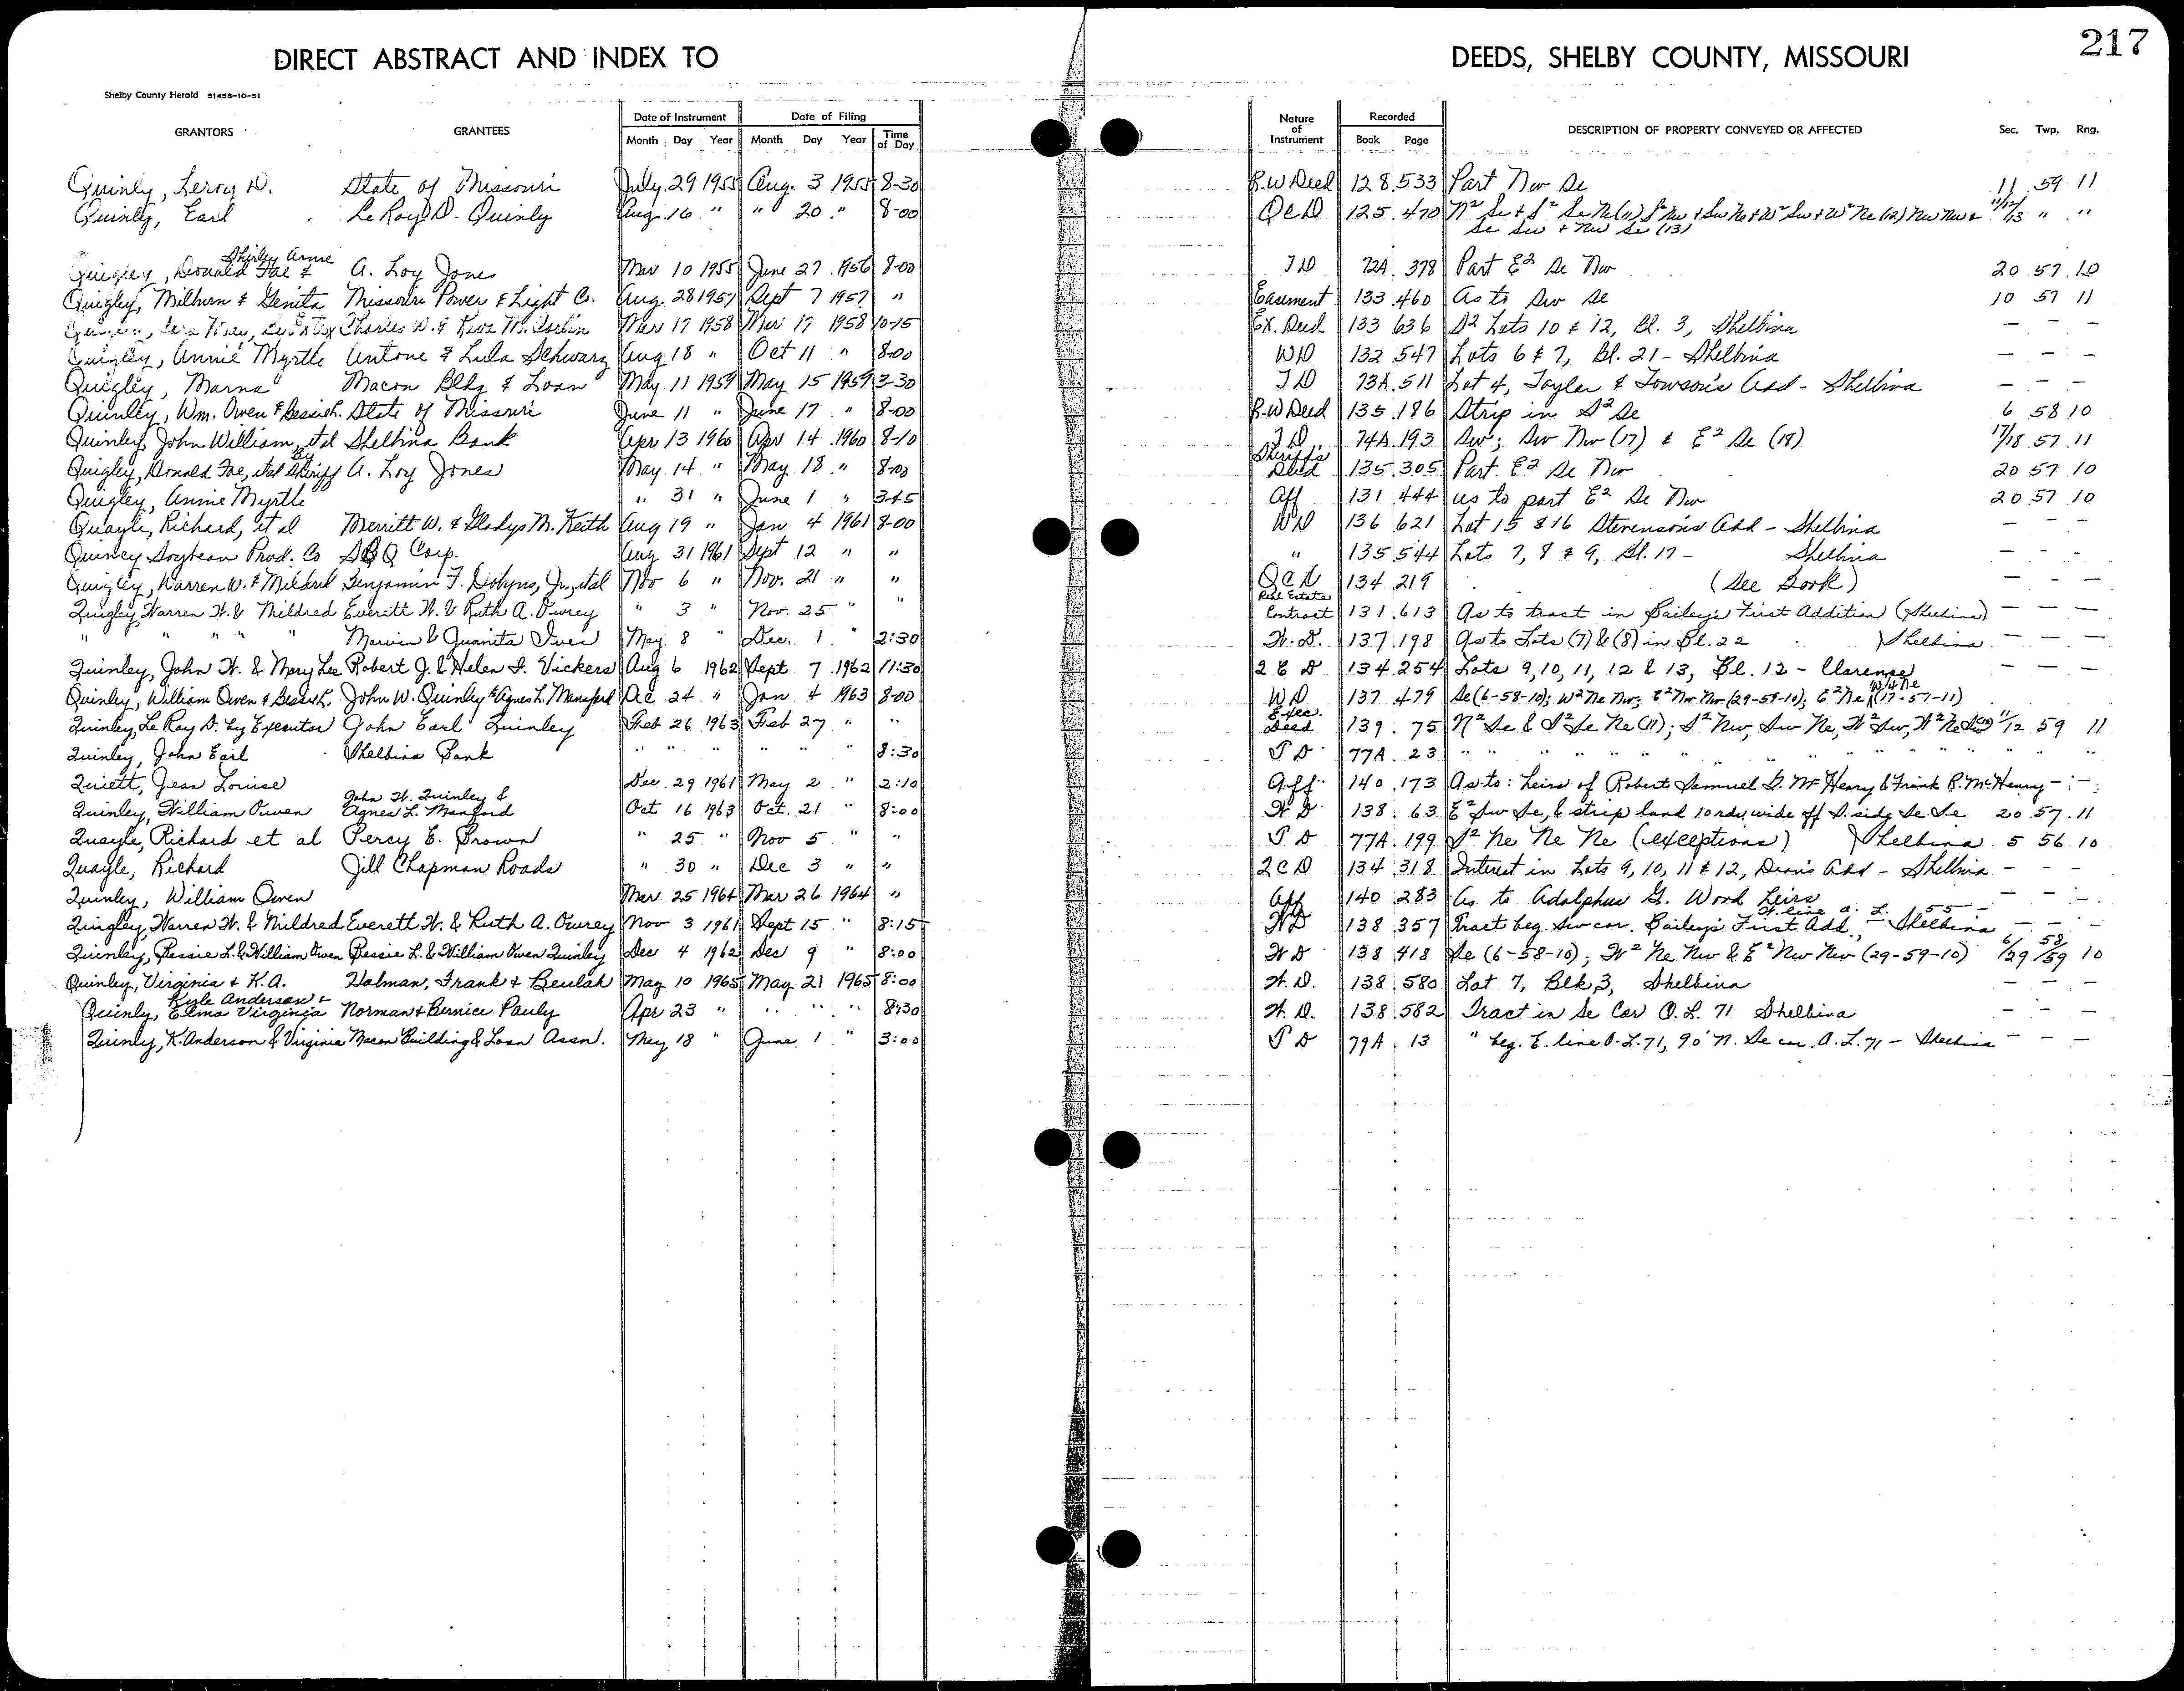 DIRECT ABSTRACT AND INDEX TO DEEDS, SHELBY COUNTY, MISSOURI 217
Shelby County Herald 51458-10-51
GRANTORS GRANTEES Date of Instrument Month Day Year Date of Filing Month Day Year Time of Day Nature of Instrument Recorded Book Page DESCRIPTION OF PROPERTY CONVEYED OR AFFECTED Sec. Twp. Rng.
Quinly, Leroy D. State of Missouri July 29 1955 Aug. 3 1955 8-30 R.W Deed 128 533 Part Nw Se 11 59 11
Quinly, Earl LeRoy D. Quinly Aug. 16 " " 20 " 8-00 QCD 125 470 N² Se + S² Se Ne (11) S² Nw + Sw Ne + W² Sw + W² Ne (12) Nw Nw + 11/12/13 " "
Se Sw + Nw Se (13)
Shirley Anne
Quigley, Donald Fae & A. Loy Jones Mar 10 1955 June 27 1956 8-00 TD 72A 378 Part E² Se Nw 20 57 10
Quigley, Milburn & Genita Missouri Power & Light Co. Aug. 28 1957 Sept 7 1957 " Easement 133 460 As to Sw Se 10 57 11
Charles W. & M. Mar 17 1958 Mar 17 1958 10-15 Ex. Deed 133 636 S² Lots 10 & 12, Bl. 3, Shelbina — — —
Quigley, Annie Myrtle Antone & Lula Schwarz Aug 18 " Oct 11 " 8-00 WD 132 547 Lots 6 & 7, Bl. 21 - Shelbina — — —
Quigley, Marna Macon Bldg & Loan May 11 1959 May 15 1959 3-30 TD 73A 511 Lot 4, Taylor & Towson's Add - Shelbina — — —
Quinley, Wm. Owen & Bessie L. State of Missouri June 11 " June 17 " 8-00 R-W Deed 135 186 Strip in S² Se 6 58 10
Quinley, John William, et al Shelbina Bank Apr 13 1960 Apr 14 1960 8-10 TD 74A 193 Sw; Sw Nw (17) & E² Se (18) 17/18 57 11
Quigley, Donald Fae, et al By Sheriff A. Loy Jones May 14 " May 18 " 8-00 Sheriff's Deed 135 305 Part E² Se Nw 20 57 10
Quigley, Annie Myrtle " 31 " June 1 " 3-45 Aff 131 444 as to part E² Se Nw 20 57 10
Quayle, Richard, et al Merritt W. & Gladys M. Keith Aug 19 " Jan 4 1961 8-00 WD 136 621 Lot 15 & 16 Stevenson's Add - Shelbina — — —
Quincy Soybean Prod. Co SBQ Corp. Aug 31 1961 Sept 12 " " " 135 544 Lots 7, 8 & 9, Bl. 17 - Shelbina — — —
Quigley, Warren W. & Mildred Benjamin F. Dobyns, Jr., et al Nov 6 " Nov. 21 " " QCD 134 219 (See Book) — — —
Quigley, Warren W. & Mildred Everitt W. & Ruth A. Owrey " 3 " Nov. 25 " " Real Estate Contract 131 613 As to tract in Bailey's First Addition (Shelbina) — — —
" " " " Marvin & Juanita Ives May 8 " Dec. 1 " 2:30 W.D. 137 198 As to Lots (7) & (8) in Bl. 22 Shelbina — — —
Quinley, John W. & Mary Lee Robert J. & Helen I. Vickers Aug 6 1962 Sept 7 1962 11:30 QCD 134 254 Lots 9, 10, 11, 12 & 13, Bl. 12 - Clarence — — —
Quinley, William Owen & Bessie L. John W. Quinley & Agnes L. Manuford Dec 24 " Jan 4 1963 8-00 WD 137 479 Se (6-58-10); W² Ne Nw; E² Nw Nw (29-59-10); E² Ne W½ Ne (17-57-11)
Quinley, Le Roy D. by Executor John Earl Quinley Feb 26 1963 Feb 27 " " Exec. Deed 139 75 N² Se & S² Se Ne (11); S² Nw, Sw Ne, W² Sw, W² Ne (12) 11/12 59 11
Quinley, John Earl Shelbina Bank " " " " " " 8:30 TD 77A 23 " " " " " " " "
Quiett, Jean Louise Dec 29 1961 May 2 " 2:10 Aff 140 173 As to: heirs of Robert Samuel G. McHenry & Frank B. McHenry — — —
Quinley, William Owen John W. Quinley & Agnes L. Manford Oct 16 1963 Oct. 21 " 8:00 WD 138 63 E² Sw Se, & strip land 10 rds. wide off S. side Se Se 20 57 11
Quayle, Richard et al Percy E. Brown " 25 " Nov 5 " " TD 77A 199 S² Ne Ne Ne (exceptions) Shelbina 5 56 10
Quayle, Richard Jill Chapman Roads " 30 " Dec 3 " " QCD 134 318 Interest in Lots 9, 10, 11 & 12, Dean's Add - Shelbina — — —
Quinley, William Owen Mar 25 1964 Mar 26 1964 " Aff 140 283 As to Adolphus G. Wood heirs — — —
Quigley, Warren W. & Mildred Everett W. & Ruth A. Owrey Nov 3 1961 Sept 15 " 8:15 WD 138 357 Tract beg. Sw cor. Bailey's First Add., W. line O. L. 55 — Shelbina — — —
Quinley, Bessie L. & William Owen Bessie L. & William Owen Quinley Dec 4 1962 Dec 9 " 8:00 WD 138 418 Se (6-58-10); W² Ne Nw & E² Nw Nw (29-59-10) 6/29 58/59 10
Quinley, Virginia & K.A. Holman, Frank & Beulah May 10 1965 May 21 1965 8:00 W.D. 138 580 Lot 7, Blk 3, Shelbina — — —
Kyle Anderson +
Quinly, Elma Virginia Norman & Bernice Pauly Apr 23 " " " " 8:30 W.D. 138 582 Tract in Se Cor O.L. 71 Shelbina — — —
Quinly, K. Anderson & Virginia Macon Building & Loan Assn. May 18 " June 1 " 3:00 TD 79A 13 " beg. E. line O.L. 71, 90' N. Se cor. O.L. 71 - Shelbina — — —